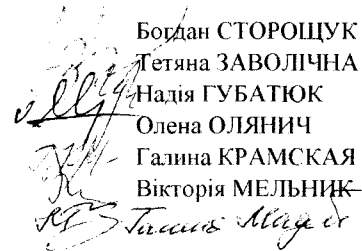 Богдан СТОРОЩУК
Тетяна ЗАВОЛІЧНА
Надія ГУБАТЮК
Олена ОЛЯНИЧ
Галина КРАМСКАЯ
Вікторія МЕЛЬНИК